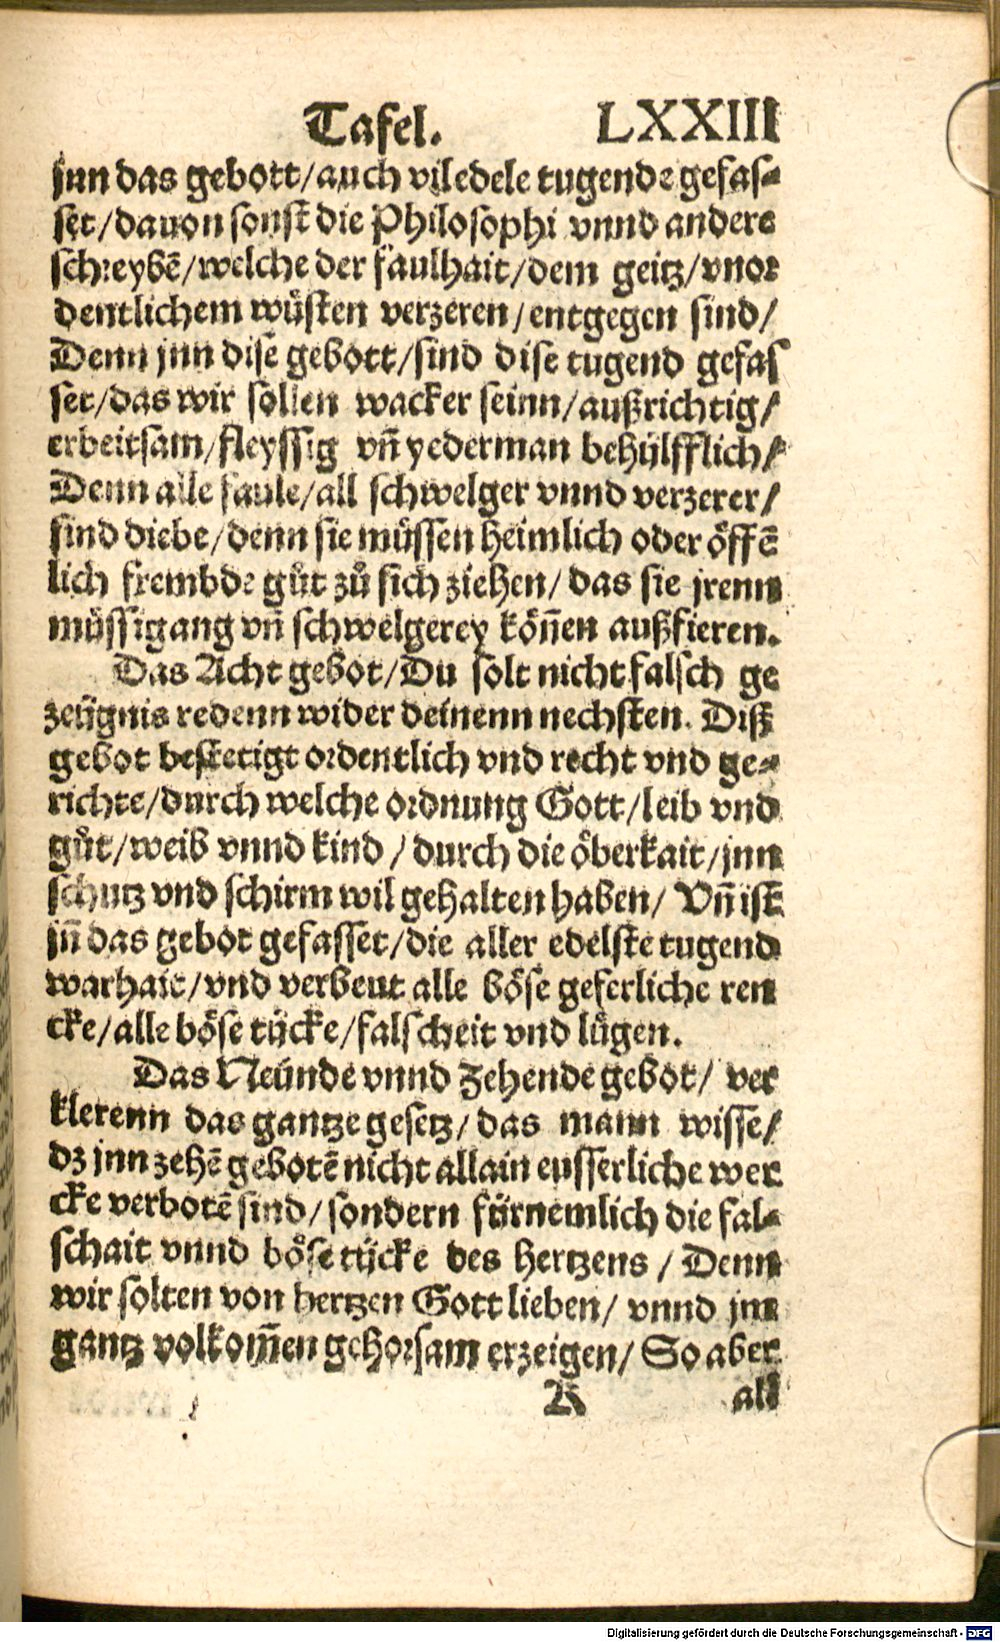 Tafel. LXXIII
jnn das gebott/auch vil edele tugende gefas-
set/dauon sonst die Philosophi vnnd andere
schreybē/welche der faulhait/dem geitz/vnor
dentlichem wüsten verzeren/entgegen sind/
Denn jnn dise gebott/sind dise tugend gefas
set/das wir sollen wacker seinn/außrichtig/
erbeitsam/fleyssig vñ yederman behülfflich/
Denn alle faule/all schwelger vnnd verzerer/
sind diebe/denn sie müssen heimlich oder öffē
lich frembde gůt zů sich ziehen/das sie jrenn
müssigang vñ schwelgerey köñen außfieren.
Das Acht gebot/Du solt nicht falsch ge
zeügnis redenn wider deinenn nechsten. Diß
gebot bestetigt ordentlich vnd recht vnd ge-
richte/durch welche ordnung Gott/leib vnd
gůt/weib vnnd kind/durch die öberkait/jnn
schutz vnd schirm wil gehalten haben/Vñ ist
jñ das gebot gefasset/die aller edelste tugend
warhait/vnd verbeut alle böse geferliche ren
cke/alle böse tücke/falscheit vnd lügen.
Das Neünde vnnd Zehende gebot/ver
klerenn das gantze gesetz/das mann wisse/
dz jnn zehē gebotē nicht allain eusserliche wer
cke verbotē sind/sondern fürnemlich die fal-
schait vnnd böse tücke des hertzens/Denn
wir solten von hertzen Gott lieben/vnnd jm
gantz volkom̄en gehorsam erzeigen/So aber
K all
Digitalisierung gefördert durch die Deutsche Forschungsgemeinschaft - DFG